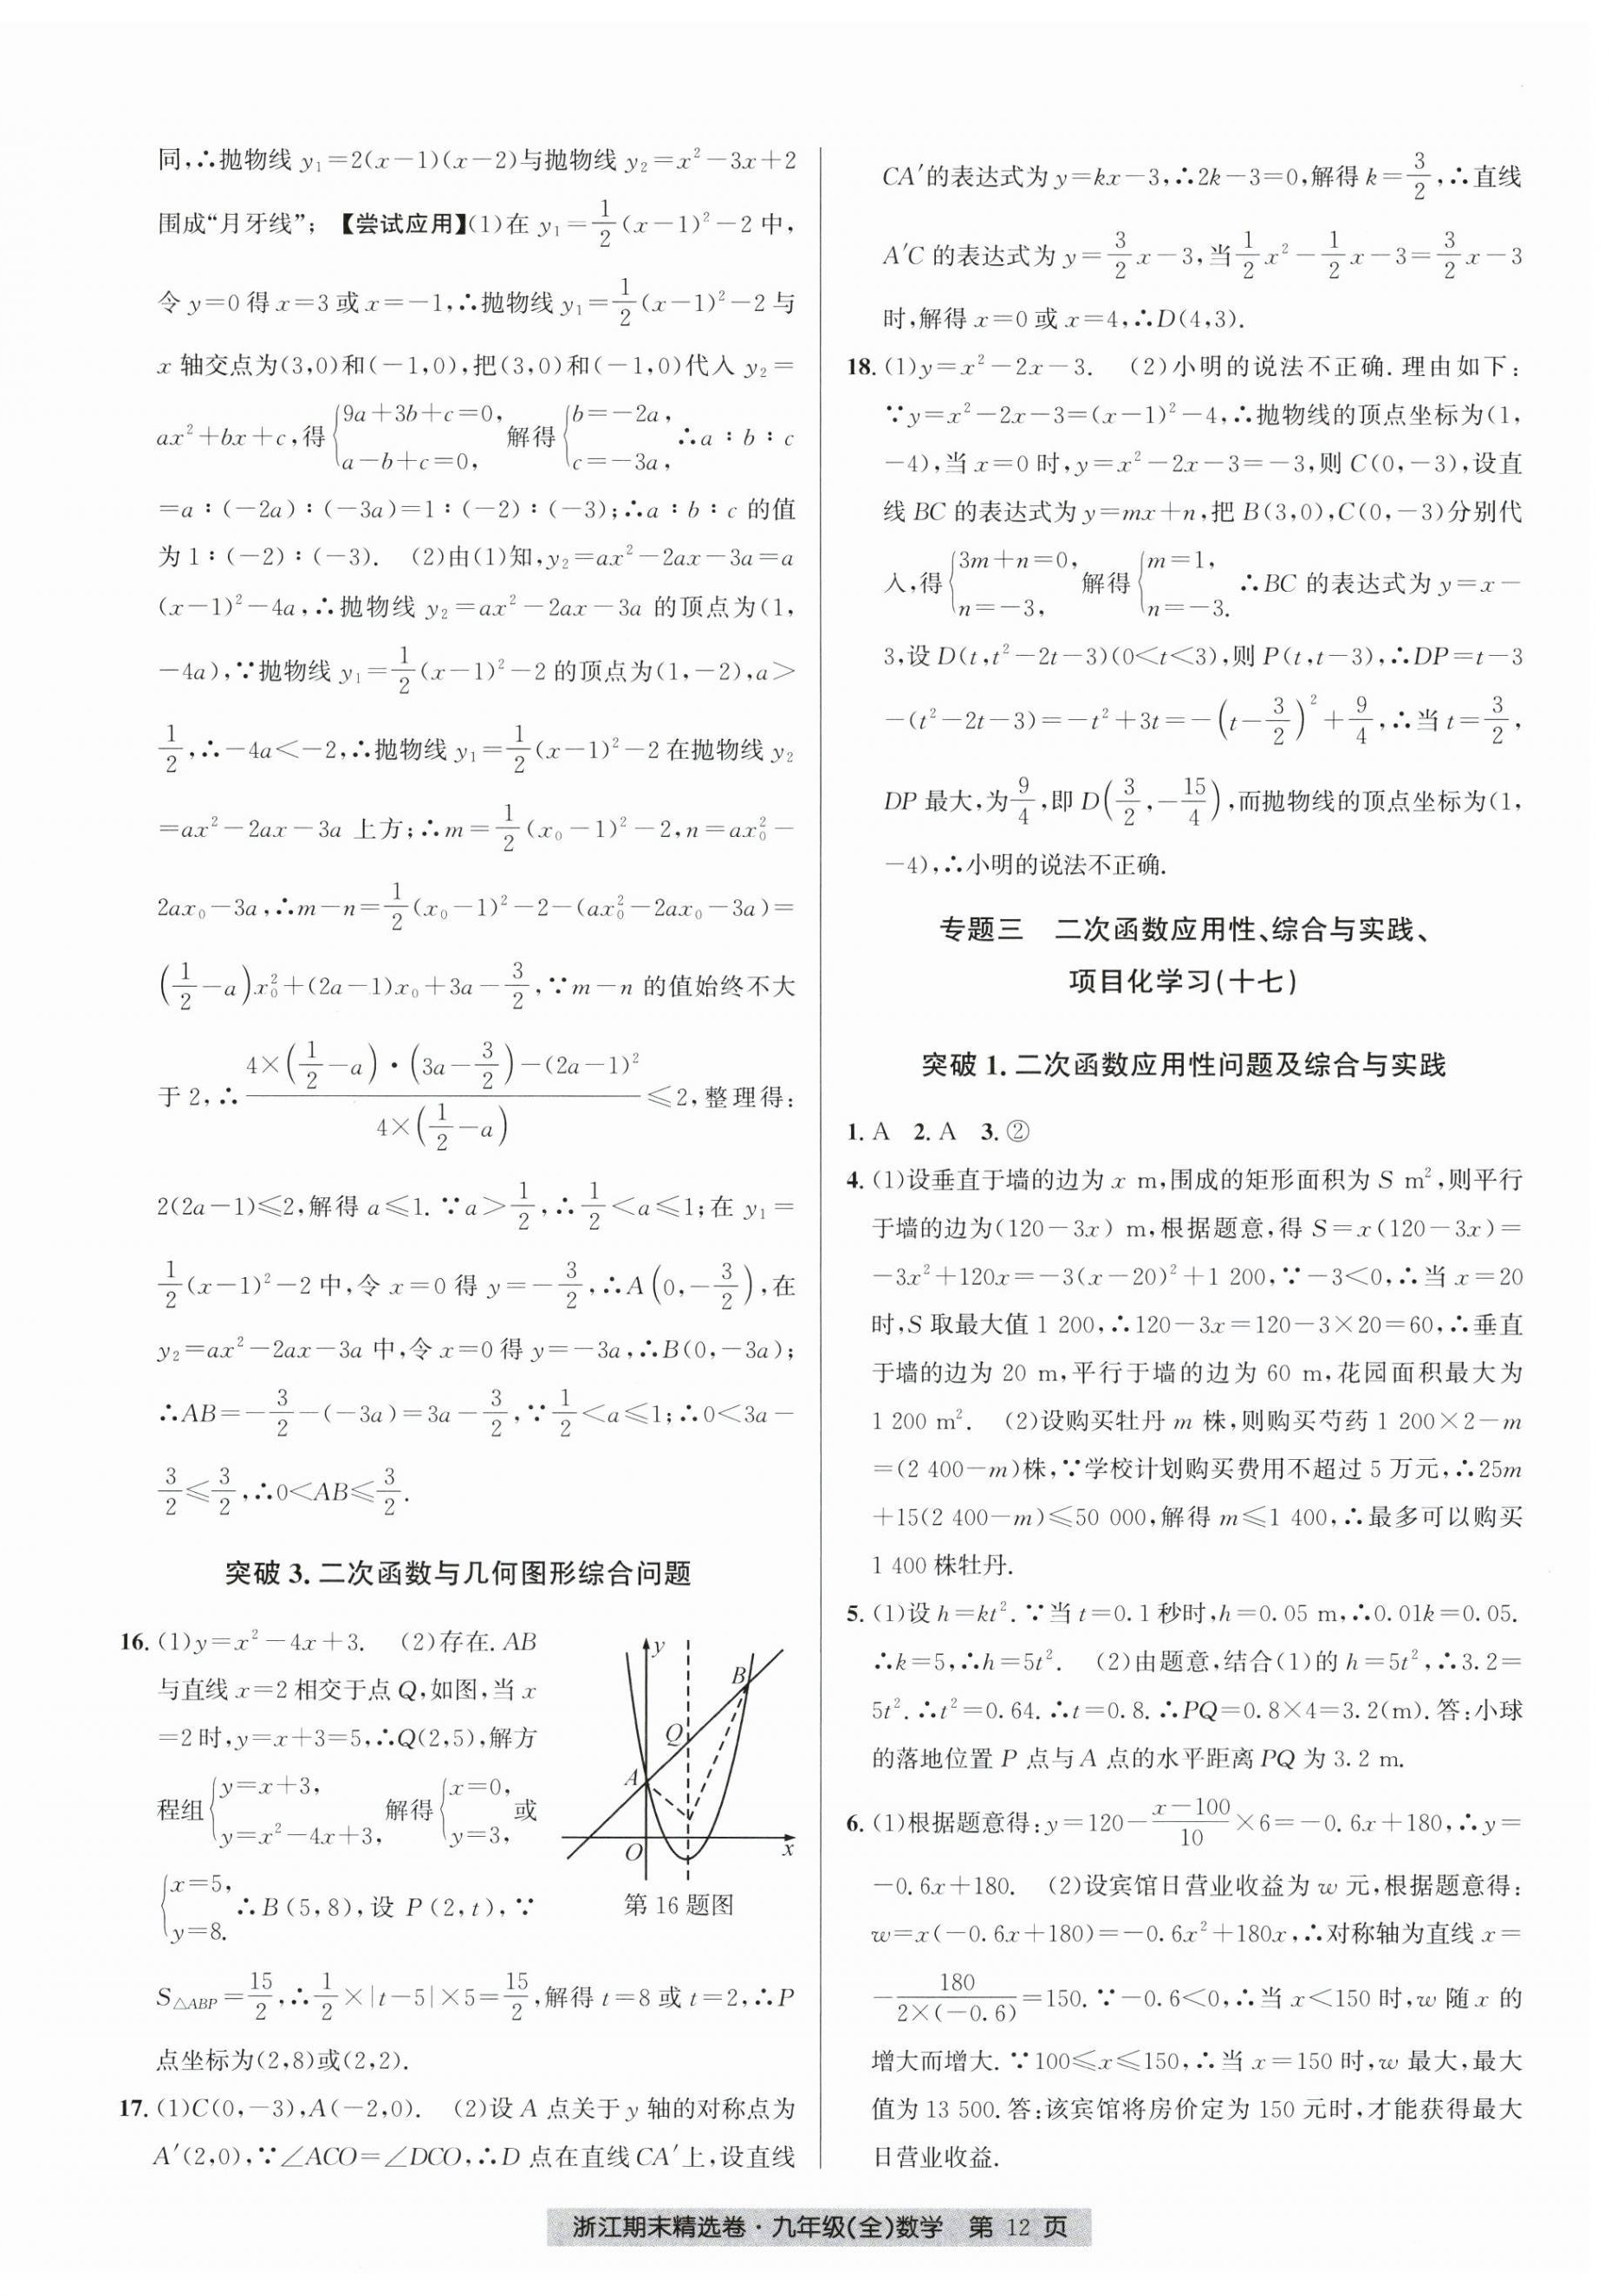 同,∴抛物线 y₁=2(x-1)(x-2)与抛物线 y₂=x²-3x+2
围成“月牙线”；【尝试应用】(1)在 y₁=1/2(x-1)²-2 中,
令 y=0 得 x=3 或 x=-1,∴抛物线 y₁=1/2(x-1)²-2 与
x 轴交点为(3,0)和(-1,0),把(3,0)和(-1,0)代入 y₂=
ax²+bx+c,得{9a+3b+c=0, a-b+c=0, 解得{b=-2a, c=-3a, ∴a∶b∶c
=a∶(-2a)∶(-3a)=1∶(-2)∶(-3);∴a∶b∶c 的值
为 1∶(-2)∶(-3). (2)由(1)知,y₂=ax²-2ax-3a=a
(x-1)²-4a,∴抛物线 y₂=ax²-2ax-3a 的顶点为(1,
-4a),∵抛物线 y₁=1/2(x-1)²-2 的顶点为(1,-2),a>
1/2,∴-4a<-2,∴抛物线 y₁=1/2(x-1)²-2 在抛物线 y₂
=ax²-2ax-3a 上方;∴m=1/2(x₀-1)²-2,n=ax₀²-
2ax₀-3a,∴m-n=1/2(x₀-1)²-2-(ax₀²-2ax₀-3a)=
(1/2-a)x₀²+(2a-1)x₀+3a-3/2,∵m-n 的值始终不大
于 2,∴[4×(1/2-a)·(3a-3/2)-(2a-1)²]/[4×(1/2-a)]≤2,整理得:
2(2a-1)≤2,解得 a≤1.∵a>1/2,∴1/2<a≤1;在 y₁=
1/2(x-1)²-2 中,令 x=0 得 y=-3/2,∴A(0,-3/2),在
y₂=ax²-2ax-3a 中,令 x=0 得 y=-3a,∴B(0,-3a);
∴AB=-3/2-(-3a)=3a-3/2,∵1/2<a≤1;∴0<3a-
3/2≤3/2,∴0<AB≤3/2.
突破 3.二次函数与几何图形综合问题
16.(1)y=x²-4x+3. (2)存在.AB
与直线 x=2 相交于点 Q,如图,当 x
=2 时,y=x+3=5,∴Q(2,5),解方
程组{y=x+3, y=x²-4x+3, 解得{x=0, y=3, 或
{x=5, y=8. ∴B(5,8),设 P(2,t),∵
y
B
Q
A
O
x
第 16 题图
S△ABP=15/2,∴1/2×|t-5|×5=15/2,解得 t=8 或 t=2,∴P
点坐标为(2,8)或(2,2).
17.(1)C(0,-3),A(-2,0). (2)设 A 点关于 y 轴的对称点为
A′(2,0),∵∠ACO=∠DCO,∴D 点在直线 CA′上,设直线
CA′的表达式为 y=kx-3,∴2k-3=0,解得 k=3/2,∴直线
A′C 的表达式为 y=3/2x-3,当1/2x²-1/2x-3=3/2x-3
时,解得 x=0 或 x=4,∴D(4,3).
18.(1)y=x²-2x-3. (2)小明的说法不正确.理由如下:
∵y=x²-2x-3=(x-1)²-4,∴抛物线的顶点坐标为(1,
-4),当 x=0 时,y=x²-2x-3=-3,则 C(0,-3),设直
线 BC 的表达式为 y=mx+n,把 B(3,0),C(0,-3)分别代
入,得{3m+n=0, n=-3, 解得{m=1, n=-3. ∴BC 的表达式为 y=x-
3,设 D(t,t²-2t-3)(0<t<3),则 P(t,t-3),∴DP=t-3
-(t²-2t-3)=-t²+3t=-(t-3/2)²+9/4,∴当 t=3/2,
DP 最大,为9/4,即 D(3/2,-15/4),而抛物线的顶点坐标为(1,
-4),∴小明的说法不正确.
专题三 二次函数应用性、综合与实践、
项目化学习(十七)
突破 1.二次函数应用性问题及综合与实践
1.A 2.A 3.②
4.(1)设垂直于墙的边为 x m,围成的矩形面积为 S m²,则平行
于墙的边为(120-3x) m,根据题意,得 S=x(120-3x)=
-3x²+120x=-3(x-20)²+1 200,∵-3<0,∴当 x=20
时,S 取最大值 1 200,∴120-3x=120-3×20=60,∴垂直
于墙的边为 20 m,平行于墙的边为 60 m,花园面积最大为
1 200 m². (2)设购买牡丹 m 株,则购买芍药 1 200×2-m
=(2 400-m)株,∵学校计划购买费用不超过 5 万元,∴25m
+15(2 400-m)≤50 000,解得 m≤1 400,∴最多可以购买
1 400 株牡丹.
5.(1)设 h=kt².∵当 t=0.1 秒时,h=0.05 m,∴0.01k=0.05.
∴k=5,∴h=5t². (2)由题意,结合(1)的 h=5t²,∴3.2=
5t².∴t²=0.64.∴t=0.8.∴PQ=0.8×4=3.2(m).答:小球
的落地位置 P 点与 A 点的水平距离 PQ 为 3.2 m.
6.(1)根据题意得:y=120-(x-100)/10×6=-0.6x+180,∴y=
-0.6x+180. (2)设宾馆日营业收益为 w 元,根据题意得:
w=x(-0.6x+180)=-0.6x²+180x,∴对称轴为直线 x=
-180/[2×(-0.6)]=150.∵-0.6<0,∴当 x<150 时,w 随 x 的
增大而增大.∵100≤x≤150,∴当 x=150 时,w 最大,最大
值为 13 500.答:该宾馆将房价定为 150 元时,才能获得最大
日营业收益.
浙江期末精选卷·九年级(全)数学 第 12 页